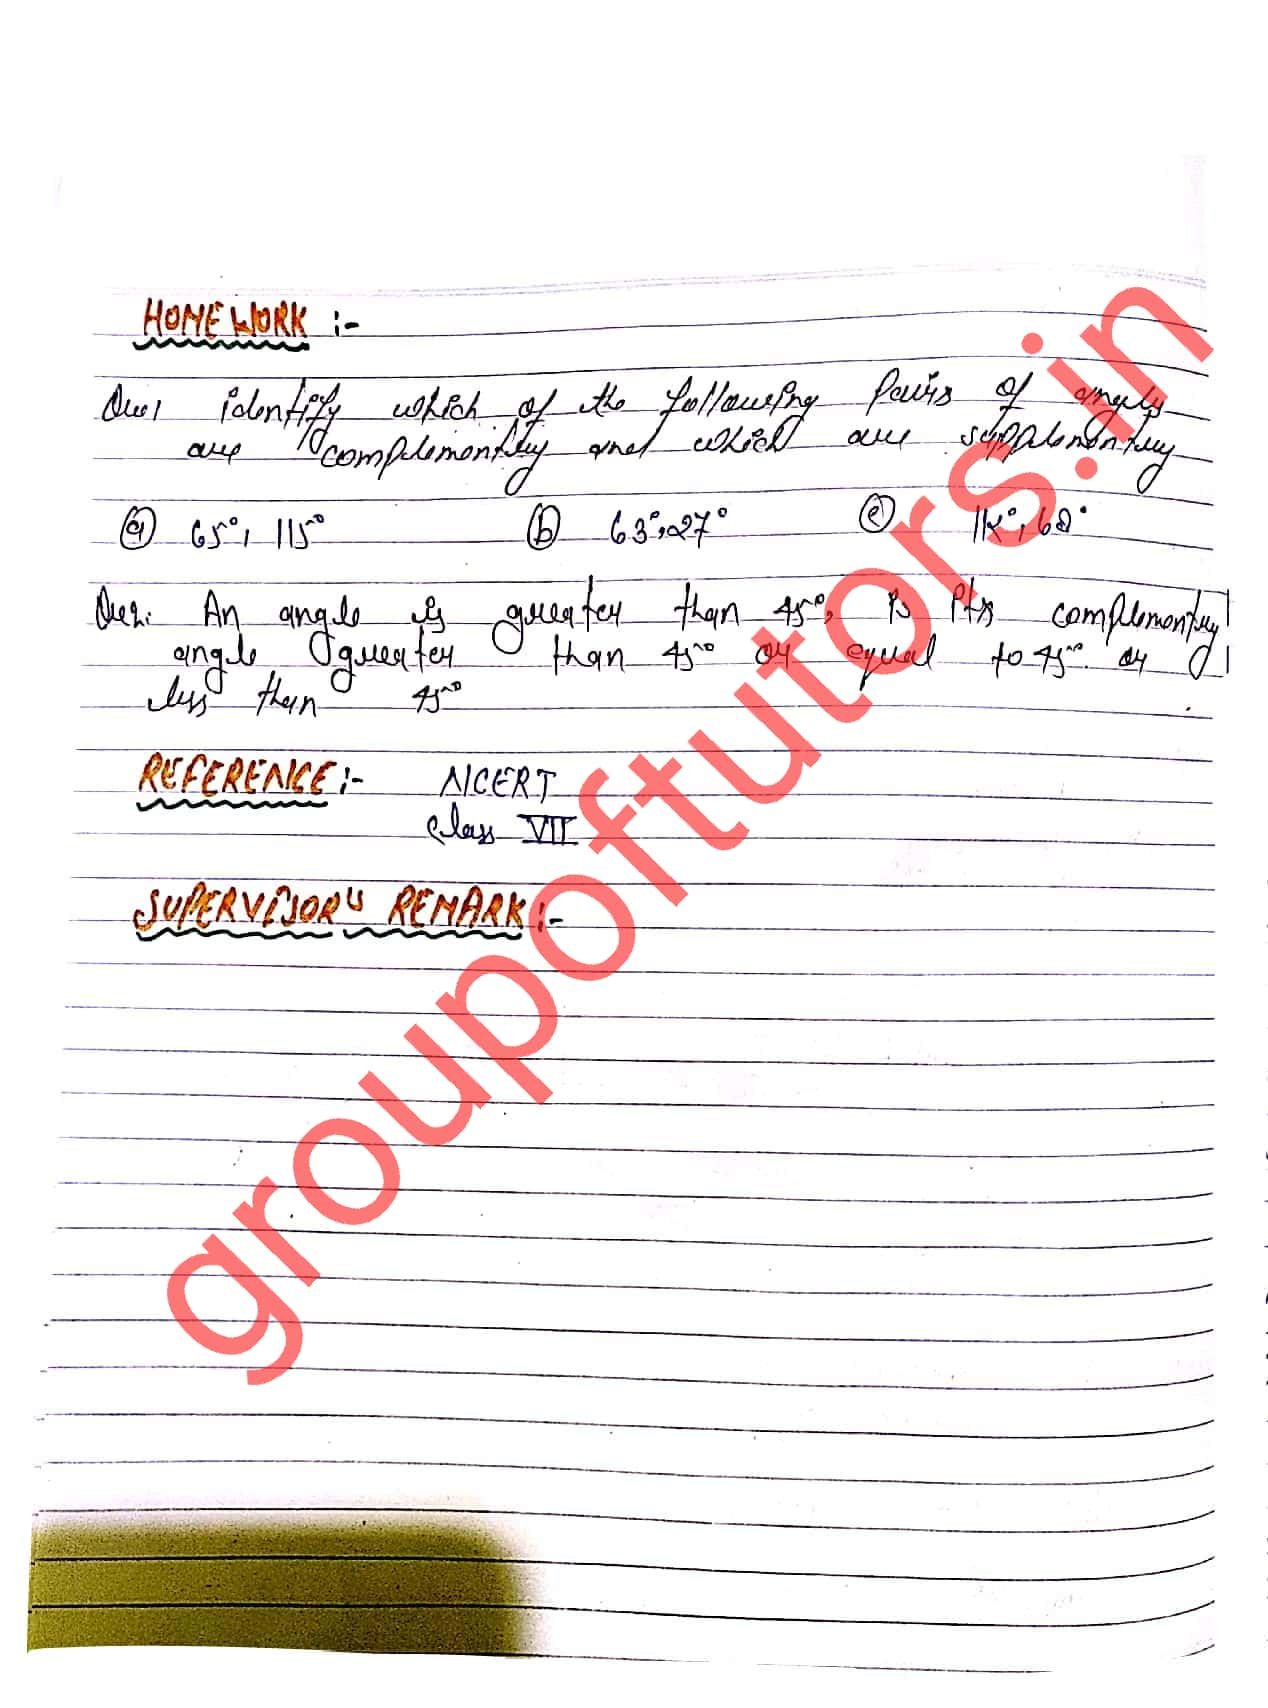 HOMEWORK :-
Que1 identify which of the following Pairs of angles
are complementry and which are supplementry
(a) 65°, 115° (b) 63°, 27° (c) 112°, 68°
Que2. An angle is greater than 45°, is its complementry
angle greater than 45° or equal to 45° or
less than 45°
REFERENCE :- NCERT
Class VII
SUPERVISOR'S REMARK :-
groupoftutors.in